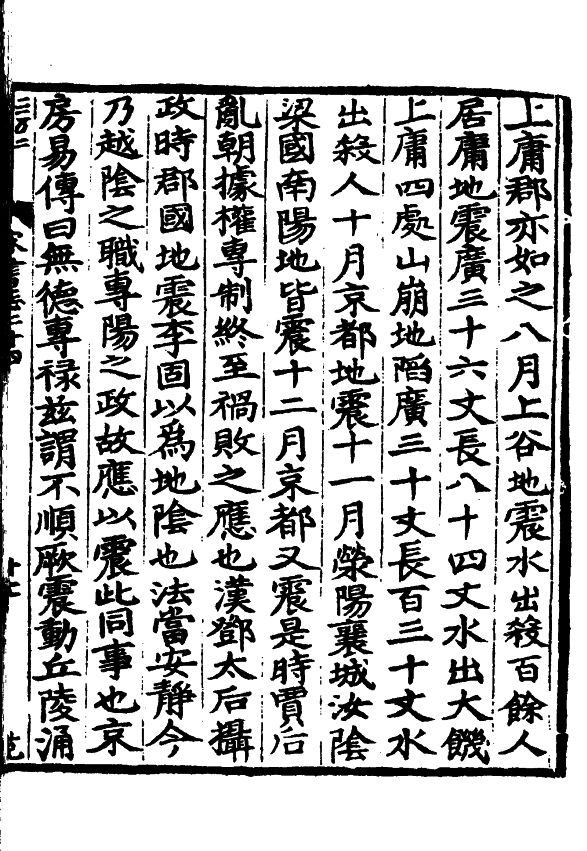 上庸郡亦如之八月上谷地震水出殺百餘人
居庸地震廣三十六丈長八十四丈水出大饑
上庸四處山崩地陷廣三十丈長百三十丈水
出殺人十月京都地震十一月滎陽襄城汝隂
梁國南陽地皆震十二月京都又震是時賈后
亂朝據權專制終至禍敗之應也漢鄧太后攝
政時郡國地震李固以爲地隂也法當安靜今
乃越隂之職專陽之政故應以震此同事也京
房易傳曰無德專禄兹謂不順厥震動丘陵涌